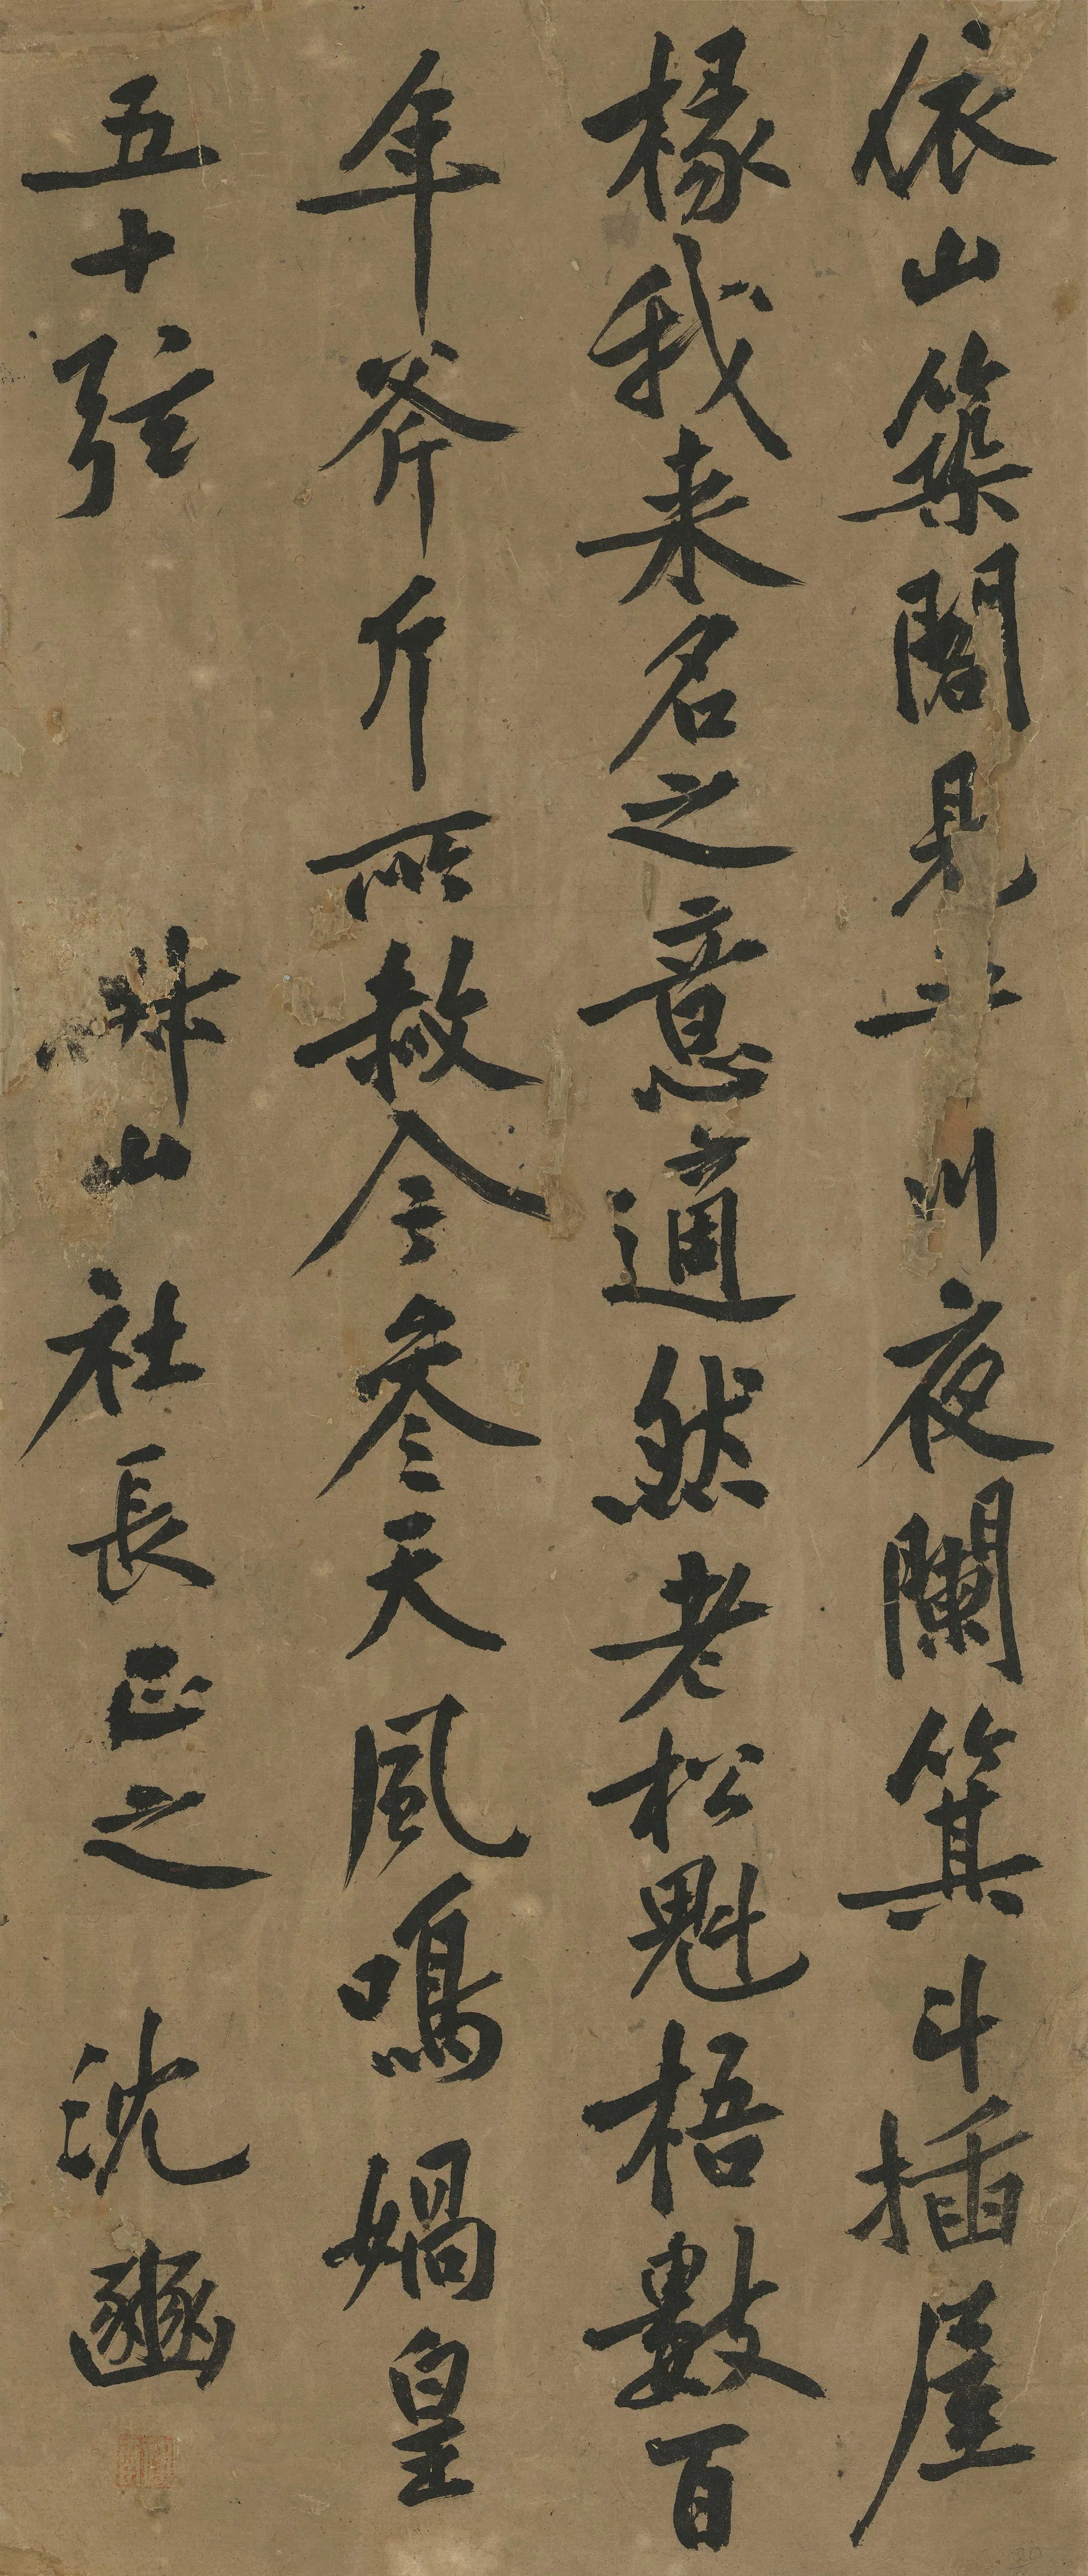 依山築閣見平川夜闌箕斗插屋
椽我来名之意適然老松魁梧數百
年斧斤所赦今叅天風鳴媧皇
五十弦
山社長正之 沈豳